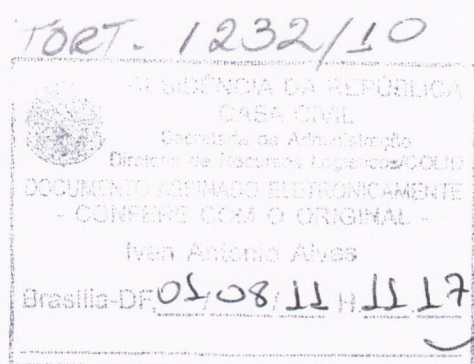 PORT. 1232/10
PRESIDÊNCIA DA REPÚBLICA
CASA CIVIL
Secretaria de Administração
Diretoria de Recursos Logísticos/COLID
DOCUMENTO ASSINADO ELETRONICAMENTE
- CONFERE COM O ORIGINAL -
Ivan Antonio Alves
Brasília-DF, 01/08/11 H 11 17